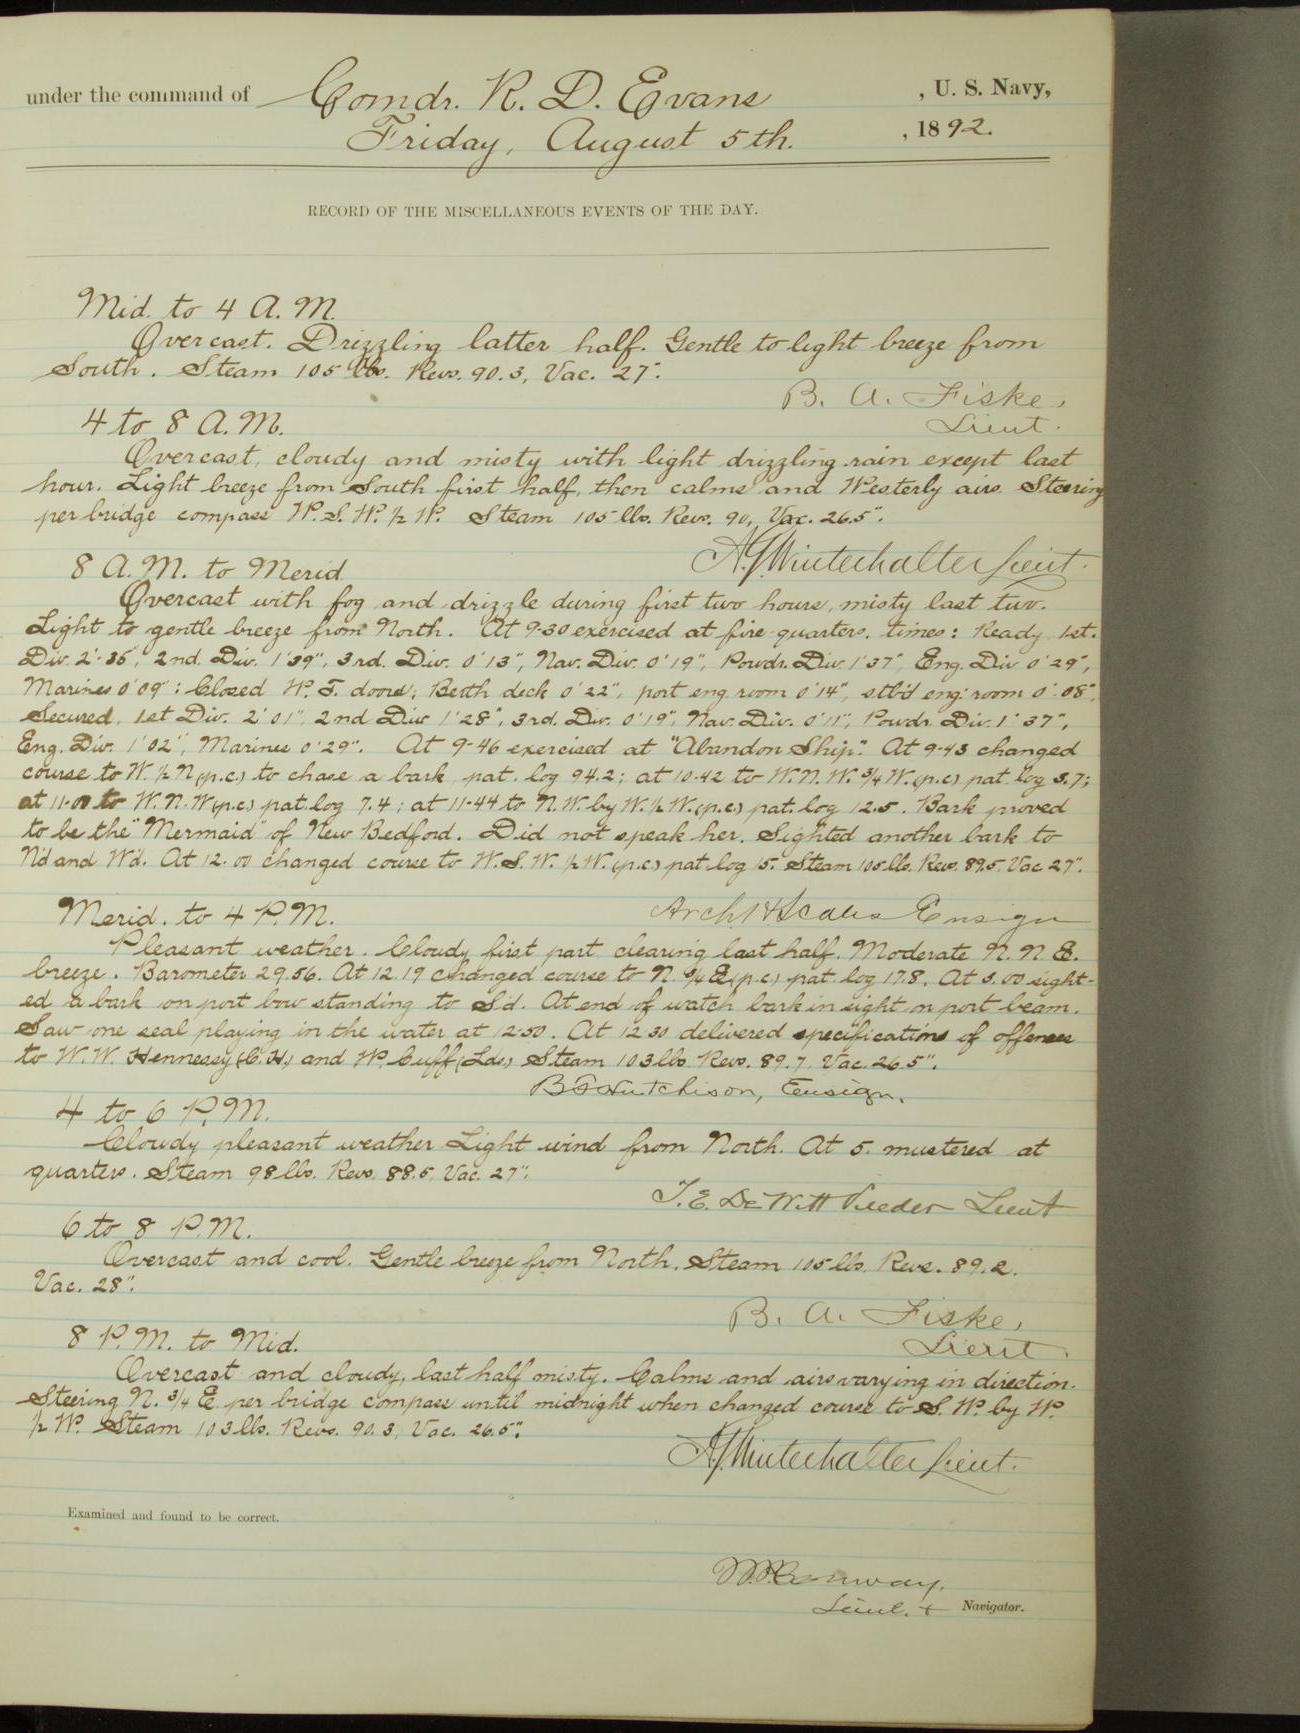 under the command of Comdr. R. D. Evans, U. S. Navy,
Friday, August 5th. , 1892.
RECORD OF THE MISCELLANEOUS EVENTS OF THE DAY.
Mid. to 4 A. M.
Overcast. Drizzling latter half. Gentle to light breeze from
South. Steam 105 lbs. Revs. 90.3, Vac. 27".
B. A. Fiske,
Lieut.
4 to 8 A. M.
Overcast, cloudy and misty with light drizzling rain except last
hour. Light breeze from South first half, then calms and Westerly airs. Steering
per bridge compass W. S. W. ½ W. Steam 105 lbs. Revs. 90, Vac. 26.5".
A. G. Winterhalter Lieut.
8 A. M. to Merid
Overcast with fog and drizzle during first two hours, misty last two.
Light to gentle breeze from North. At 9-30 exercised at fire quarters. times: Ready 1st.
Div. 2'-35", 2nd. Div. 1'39", 3rd. Div. 0'13", Nav. Div. 0'19", Powdr. Div. 1'37", Eng. Div 0'29",
Marines 0'09": Closed W. T. doors; Berth deck 0'22", port eng. room 0'14", stb'd eng. room 0'.08",
Secured, 1st Div. 2'01", 2nd Div 1'28", 3rd. Div. 0'19", Nav. Div. 0'11", Powdr. Div. 1'37",
Eng. Div. 1'02", Marines 0'29". At 9-46 exercised at "Abandon Ship". At 9-43 changed
course to W. ½ N (p.c.) to chase a bark, pat. log 94.2; at 10-42 to W. N. W. ¾ W. (p.c.) pat. log 3.7;
at to W. N. W (p.c.) pat. log 7.4; at 11-44 to N. W. by W. ½ W. (p.c.) pat. log 12.5. Bark proved
to be the "Mermaid" of New Bedford. Did not speak her. Sighted another bark to
N'd and W'd. At 12.00 changed course to W. S. W. ½ W. (p.c.) pat log 15. Steam 105 lbs. Revs. 89.5, Vac 27".
Arch H Scales Ensign
Merid. to 4 P. M.
Pleasant weather. Cloudy first part, clearing last half. Moderate N. N E.
breeze. Barometer 29.56. At 12.19 changed course to N. ¾ E (p.c.) pat. log 17.8. At 3.00 sight-
ed a bark on port bow standing to S'd. At end of watch bark in sight on port beam.
Saw one seal playing in the water at 12-50. At 12 30 delivered specifications of offenses
to W. W. Hennessy (C. H.) and W. Cuff (Lds) Steam 103 lbs. Revs. 89.7, Vac. 26.5".
B F Hutchison, Ensign.
4 to 6 P. M.
Cloudy pleasant weather Light wind from North. At 5. mustered at
quarters. Steam 98 lbs. Revs. 88.5, Vac. 27".
T. E. DeWitt Veeder Lieut
6 to 8 P. M.
Overcast and cool. Gentle breeze from North. Steam 105 lbs. Revs. 89.2.
Vac. 28".
B. A. Fiske,
Lieut.
8 P. M. to Mid.
Overcast and cloudy, last half misty. Calms and airs varying in direction.
Steering N. ¾ E per bridge compass until midnight when changed course to S. W. by W.
½ W. Steam 103 lbs. Revs. 90.3, Vac. 26.5".
A. G. Winterhalter Lieut.
Examined and found to be correct.
Conway,
Lieut. + Navigator.